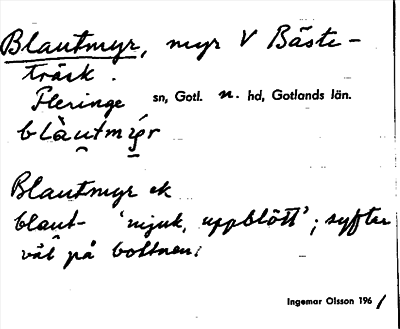 Blautmyr, myr V Bäste-
träsk.
Fleringe sn, Gotl. n. hd, Gotlands län.
blàutmýr
Blautmyr ek
blaut- 'mjuk, uppblött'; syftar
väl på bottnen.
Ingemar Olsson 1961